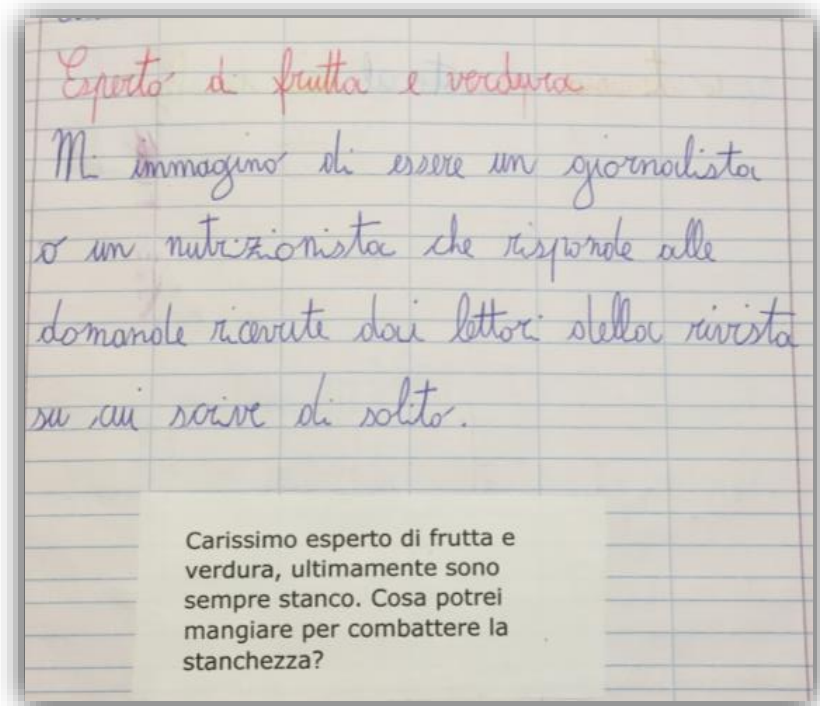 Esperto di frutta e verdura
Mi immagino di essere un giornalista
o un nutrizionista che risponde alle
domande ricevute dai lettori della rivista
su cui scrive di solito.
Carissimo esperto di frutta e
verdura, ultimamente sono
sempre stanco. Cosa potrei
mangiare per combattere la
stanchezza?